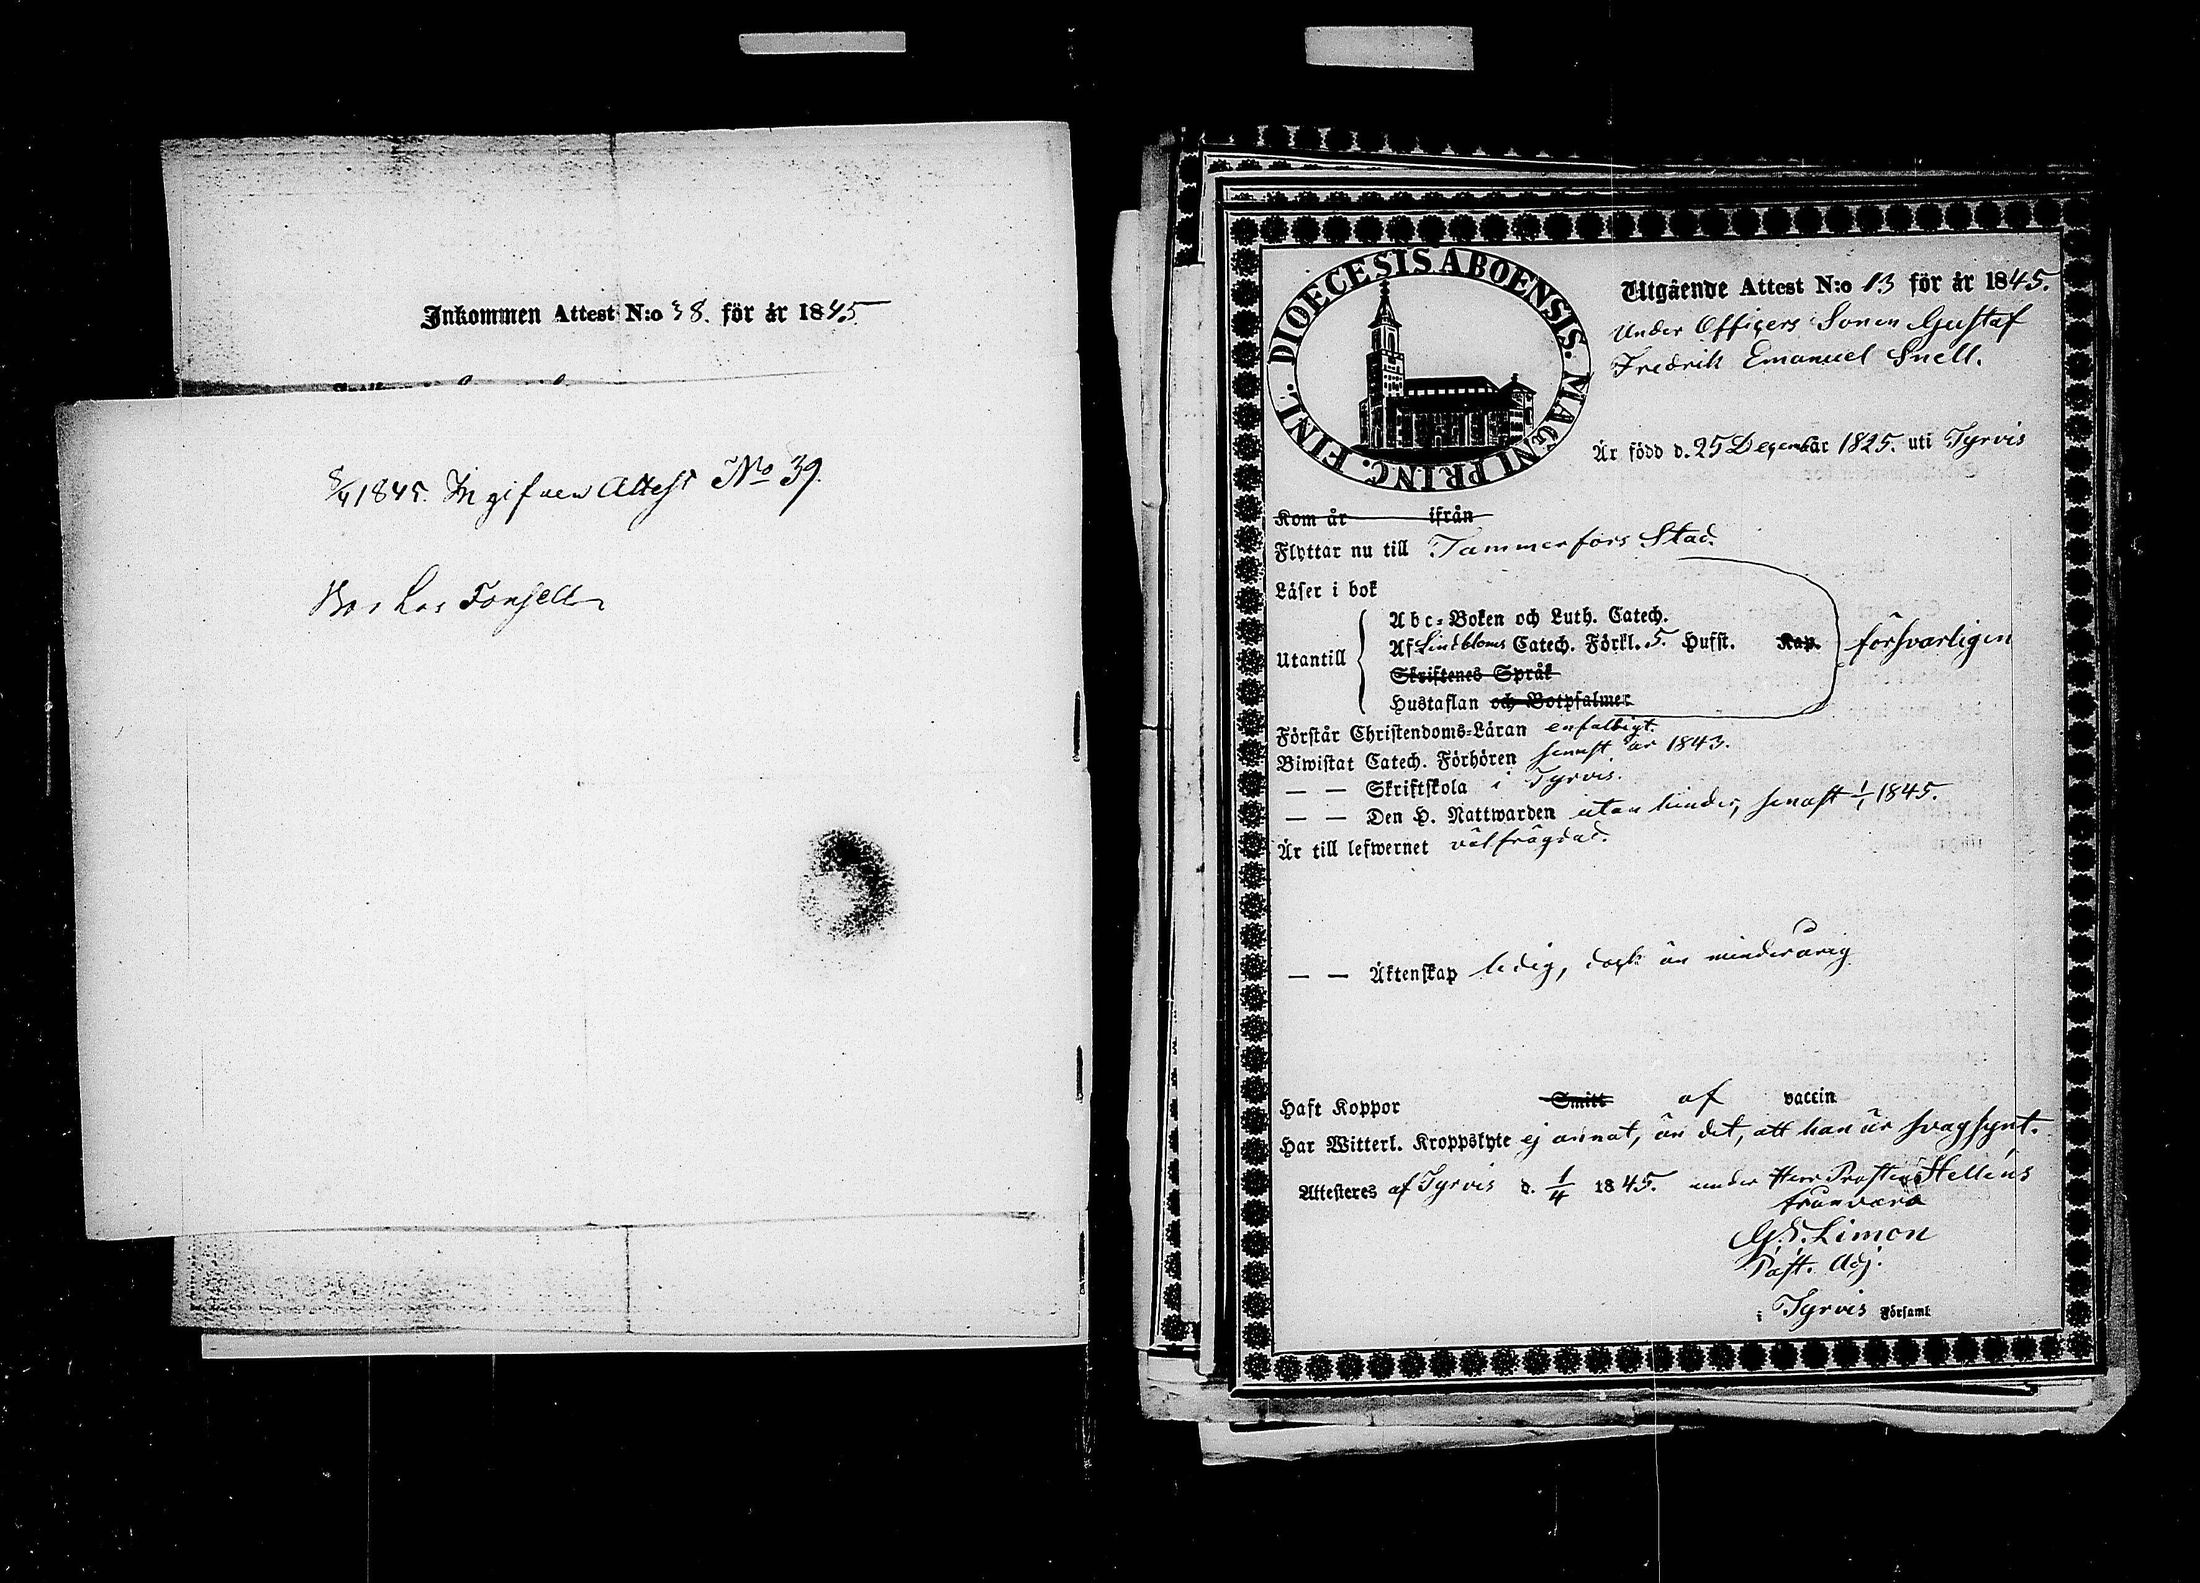 Inkommen Attest N:o 38. för år 1845.
8/4 1845. Ingifven Attest No 39.
Bor hos
DIOECESIS ABOENSIS. MAGNI PRINC. FINL.
Utgående Attest N:o 13 för år 1845.
Under Officers Sonen Gustaf
Fredrik Emanuel Snell.
Är född d. 25 December 1825. uti Tyrvis
Kom år ifrån
Flyttar nu till Tammerfors Stad.
Läser i bok
Utantill
Abc-Boken och Luth. Catech.
Af Lindbloms Catech. Förkl. 5. Hufst. Kap.
Skriftenes Språk
Hustaflan och Botpsalmer
försvarligen
Förstår Christendoms-Läran enfaldigt.
Biwistat Catech. Förhören senast år 1843.
— — Skriftskola i Tyrvis.
— — Den H. Nattwarden utan hinder, senast 1/1 1845.
Är till lefwernet välfrägdad.
— — Äktenskap ledig, dock än minderårig
Haft Koppor Smitt af vaccin
Har Witterl. Kroppslyte ej annat, än det, att han är svagsynt.
Attesteres af Tyrvis d. 1/4 1845. under Herr Prosten Helléns
frånvaro
G. E. Limon
Past. Adj.
i Tyrvis Församl